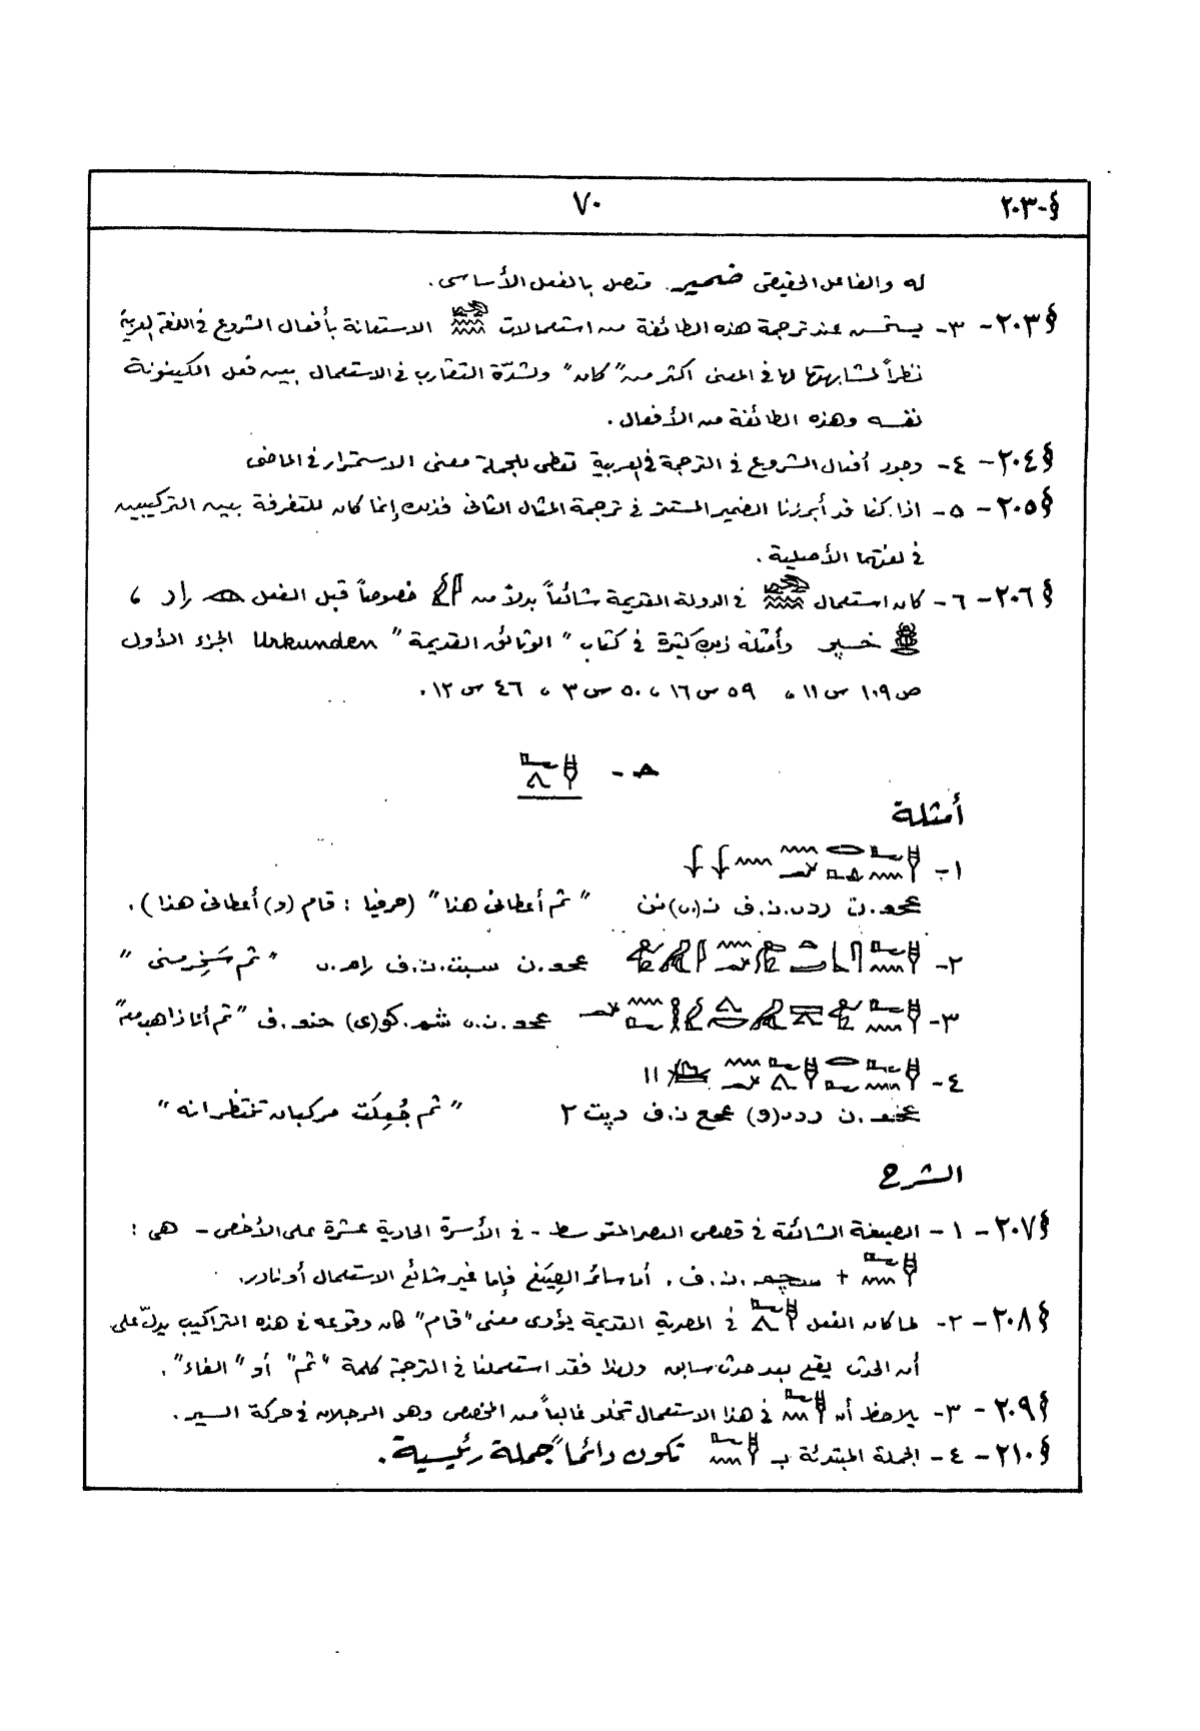 §-٢٠٣ ٧٠
له والفاعل الحقيقى ضمير متصل بالفعل الأساسى.
§٢٠٣ - ٣- يستحسن عند ترجمة هذه الطائفة من استعمالات الاستعانة بأفعال الشروع فى اللغة العربية
نظراً لمشابهتها لها فى المعنى أكثر من "كان" ولشدّة التقارب فى الاستعمال بين فعل الكينونة
نفسه وهذه الطائفة من الأفعال.
§٢٠٤ - ٤- وجود أفعال الشروع فى الترجمة فى العربية تعطى للجملة معنى الاستمرار فى الماضى
§٢٠٥ - ٥- اذا كنا قد أبرزنا الضمير المستتر فى ترجمة المثال الثانى فذلك إنما كان للتفرقة بين التركيبين
فى لغتهما الأصلية.
§٢٠٦ - ٦- كان استعمال فى الدولة القديمة شائعاً بدلاً من خصوصاً قبل الفعل راد ،
خـپـر وأمثلة ذلك كثيرة فى كتاب "الوثائق القديمة" Urkunden الجزء الأول
ص ١٠٩ س ١١ ، ٥٩ س ١٦ ، ٥٠ س ٣ ، ٤٦ س ١٢.
٨ -
أمثلة
١-
عحع.ن ردى.ن.ف ن(.ى) نن "ثم أعطانى هذا" (حرفيا : قام (و) أعطانى هذا).
٢- عحع.ن سبت.ن.ف "ثم سَخِر منى"
٣- عحع.ن.ى شم.كو(ى) حنع.ف "ثم أنا ذاهب معه"
٤-
عحع.ن ردى(و) عحع ن.ف دپت ٢ "ثم جُعِلَت مركبان تنتظرانه"
الشرح
§٢٠٧ - ١- الصيغة الشائعة فى قصص العصر المتوسط - فى الأسرة الحادية عشرة على الأخص - هى :
+ سچم.ن.ف. أما سائر الصِيَغ فإما غير شائع الاستعمال أو نادر.
§٢٠٨ - ٢- لما كان الفعل فى المصرية القديمة يؤدى معنى "قام" كان وقوعه فى هذه التراكيب يدلّ على
أن الحدث يقع بعد حدث سابق ولهذا فقد استعملنا فى الترجمة كلمة "ثم" أو "الفاء".
§٢٠٩ - ٣- يلاحظ أن فى هذا الاستعمال تخلو غالباً من المخصص وهو الرجلان فى حركة السير.
§٢١٠ - ٤- الجملة المبتدئة بـ تكون دائماً جملة رئيسية.